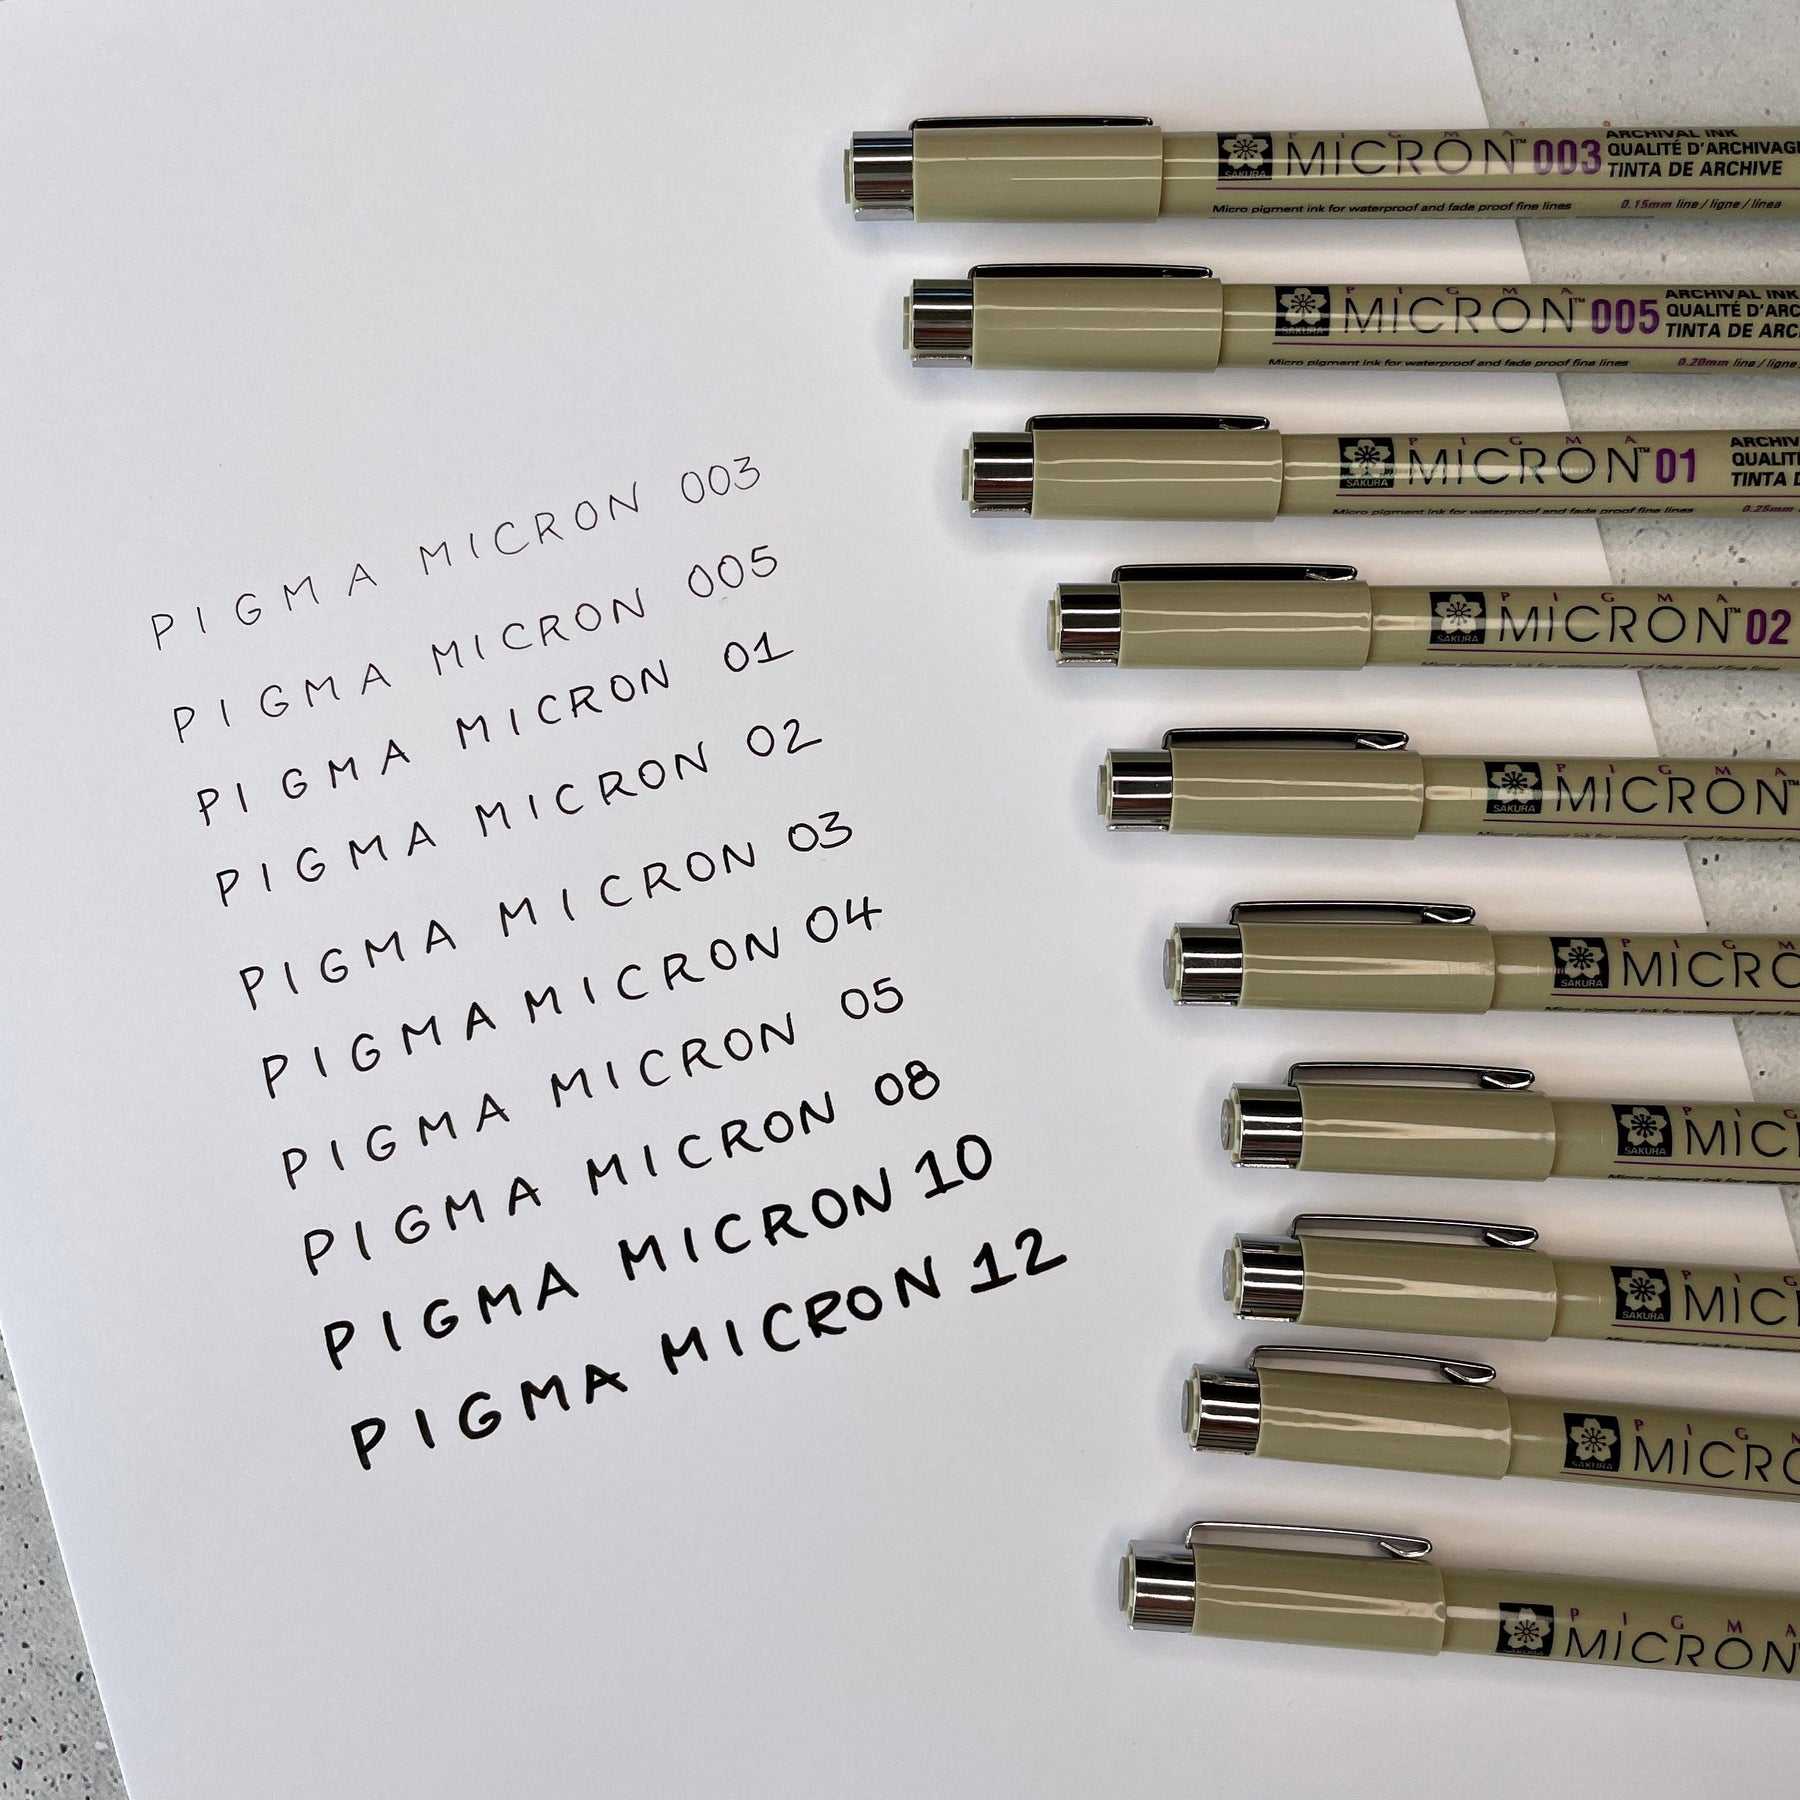 PIGMA MICRON 003
PIGMA MICRON 005
PIGMA MICRON 01
PIGMA MICRON 02
PIGMA MICRON 03
PIGMA MICRON 04
PIGMA MICRON 05
PIGMA MICRON 08
PIGMA MICRON 10
PIGMA MICRON 12
PIGMA
SAKURA MICRON™ 003
ARCHIVAL INK
QUALITÉ D'ARCHIVAGE
TINTA DE ARCHIVE
Micro pigment ink for waterproof and fade proof fine lines 0.15mm line / ligne / línea
PIGMA
SAKURA MICRON™ 005
ARCHIVAL INK
QUALITÉ D'ARC
TINTA DE ARC
Micro pigment ink for waterproof and fade proof fine lines 0.20mm line / ligne
PIGMA
SAKURA MICRON™ 01
ARCHIV
QUALIT
TINTA D
Micro pigment ink for waterproof and fade proof fine lines 0.25mm
PIGMA
SAKURA MICRON™ 02
Micro pigment ink for waterproof and fade proof fine lines
PIGMA
SAKURA MICRON™
Micro pigment ink for waterproof and fade proof fine
PIGM
SAKURA MICRO
Micro pigment ink for waterproof and fad
PIG
SAKURA MICR
Micro pigment ink for waterproof
PIG
SAKURA MICR
Micro pigment ink for waterproof
PIGM
SAKURA MICRO
PIGMA
SAKURA MICRON